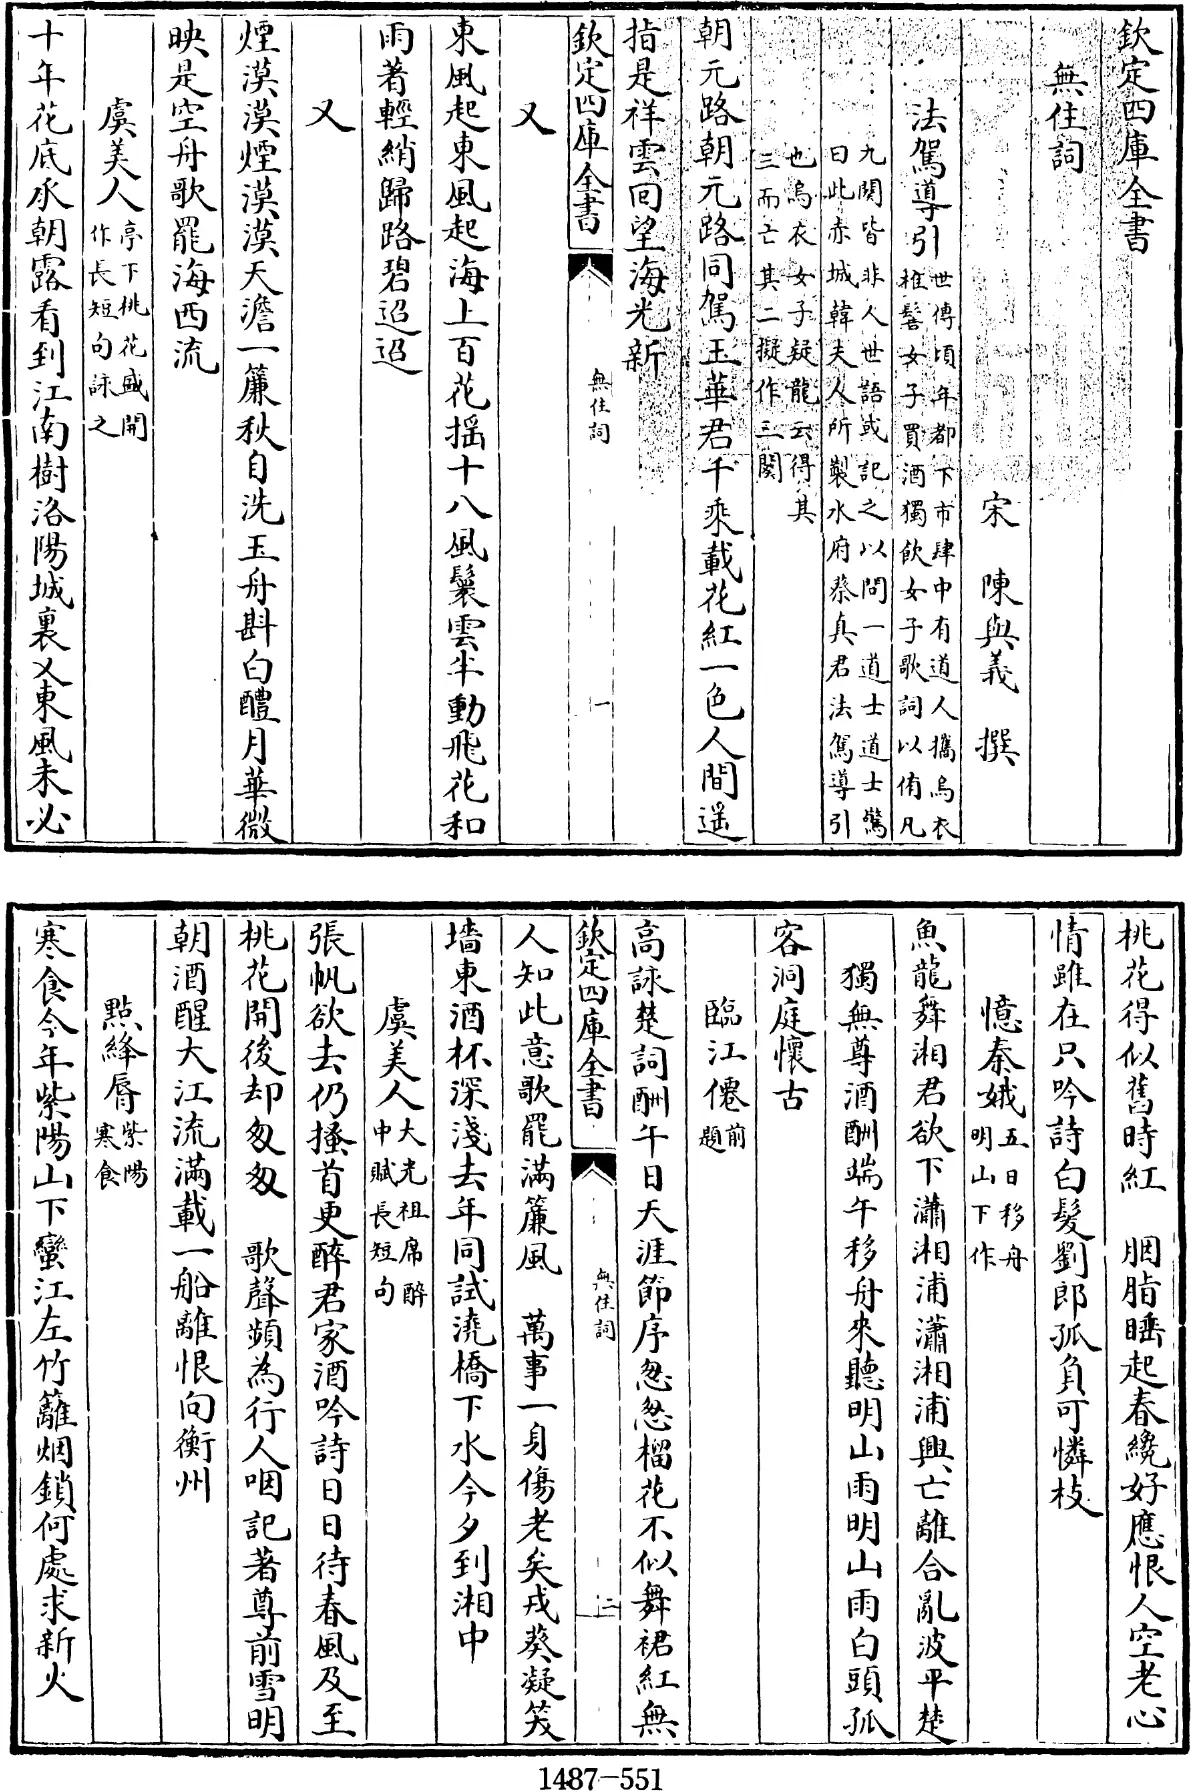 欽定四庫全書
無住詞
宋 陳與義 撰
法駕導引世傳頃年都下市肆中有道人攜烏衣
椎髻女子買酒獨飲女子歌詞以侑凡
九闋皆非人世語或記之以問一道士道士驚
曰此赤城韓夫人所製水府蔡真君法駕導引
也烏衣女子疑龍云得其
三而亡其二擬作三闋
朝元路朝元路同駕玉華君千乘載花紅一色人間遥
指是祥雲回望海光新
欽定四庫全書
無住詞
一
又
東風起東風起海上百花揺十八風鬟雲半動飛花和
雨著輕綃歸路碧迢迢
又
煙漠漠煙漠漠天澹一簾秋自洗玉舟斟白醴月華微
映是空舟歌罷海西流
虞美人亭下桃花盛開
作長短句詠之
十年花底承朝露看到江南樹洛陽城裏又東風未必
桃花得似舊時紅 胭脂睡起春纔好應恨人空老心
情雖在只吟詩白髮劉郎孤負可憐枝
憶秦娥五日移舟
明山下作
魚龍舞湘君欲下瀟湘浦瀟湘浦興亡離合亂波平楚
獨無尊酒酬端午移舟來聽明山雨明山雨白頭孤
客洞庭懷古
臨江僊前
題
高詠楚詞酬午日天涯節序怱怱榴花不似舞裙紅無
欽定四庫全書
無住詞
二
人知此意歌罷滿簾風 萬事一身傷老矣戎葵凝笑
墻東酒杯深淺去年同試澆橋下水今夕到湘中
虞美人大光祖席醉
中賦長短句
張帆欲去仍搔首更醉君家酒吟詩日日待春風及至
桃花開後却匆匆 歌聲頻為行人咽記著尊前雪明
朝酒醒大江流滿載一船離恨向衡州
點絳脣紫陽
寒食
寒食今年紫陽山下蠻江左竹籬烟鎖何處求新火
1487—551